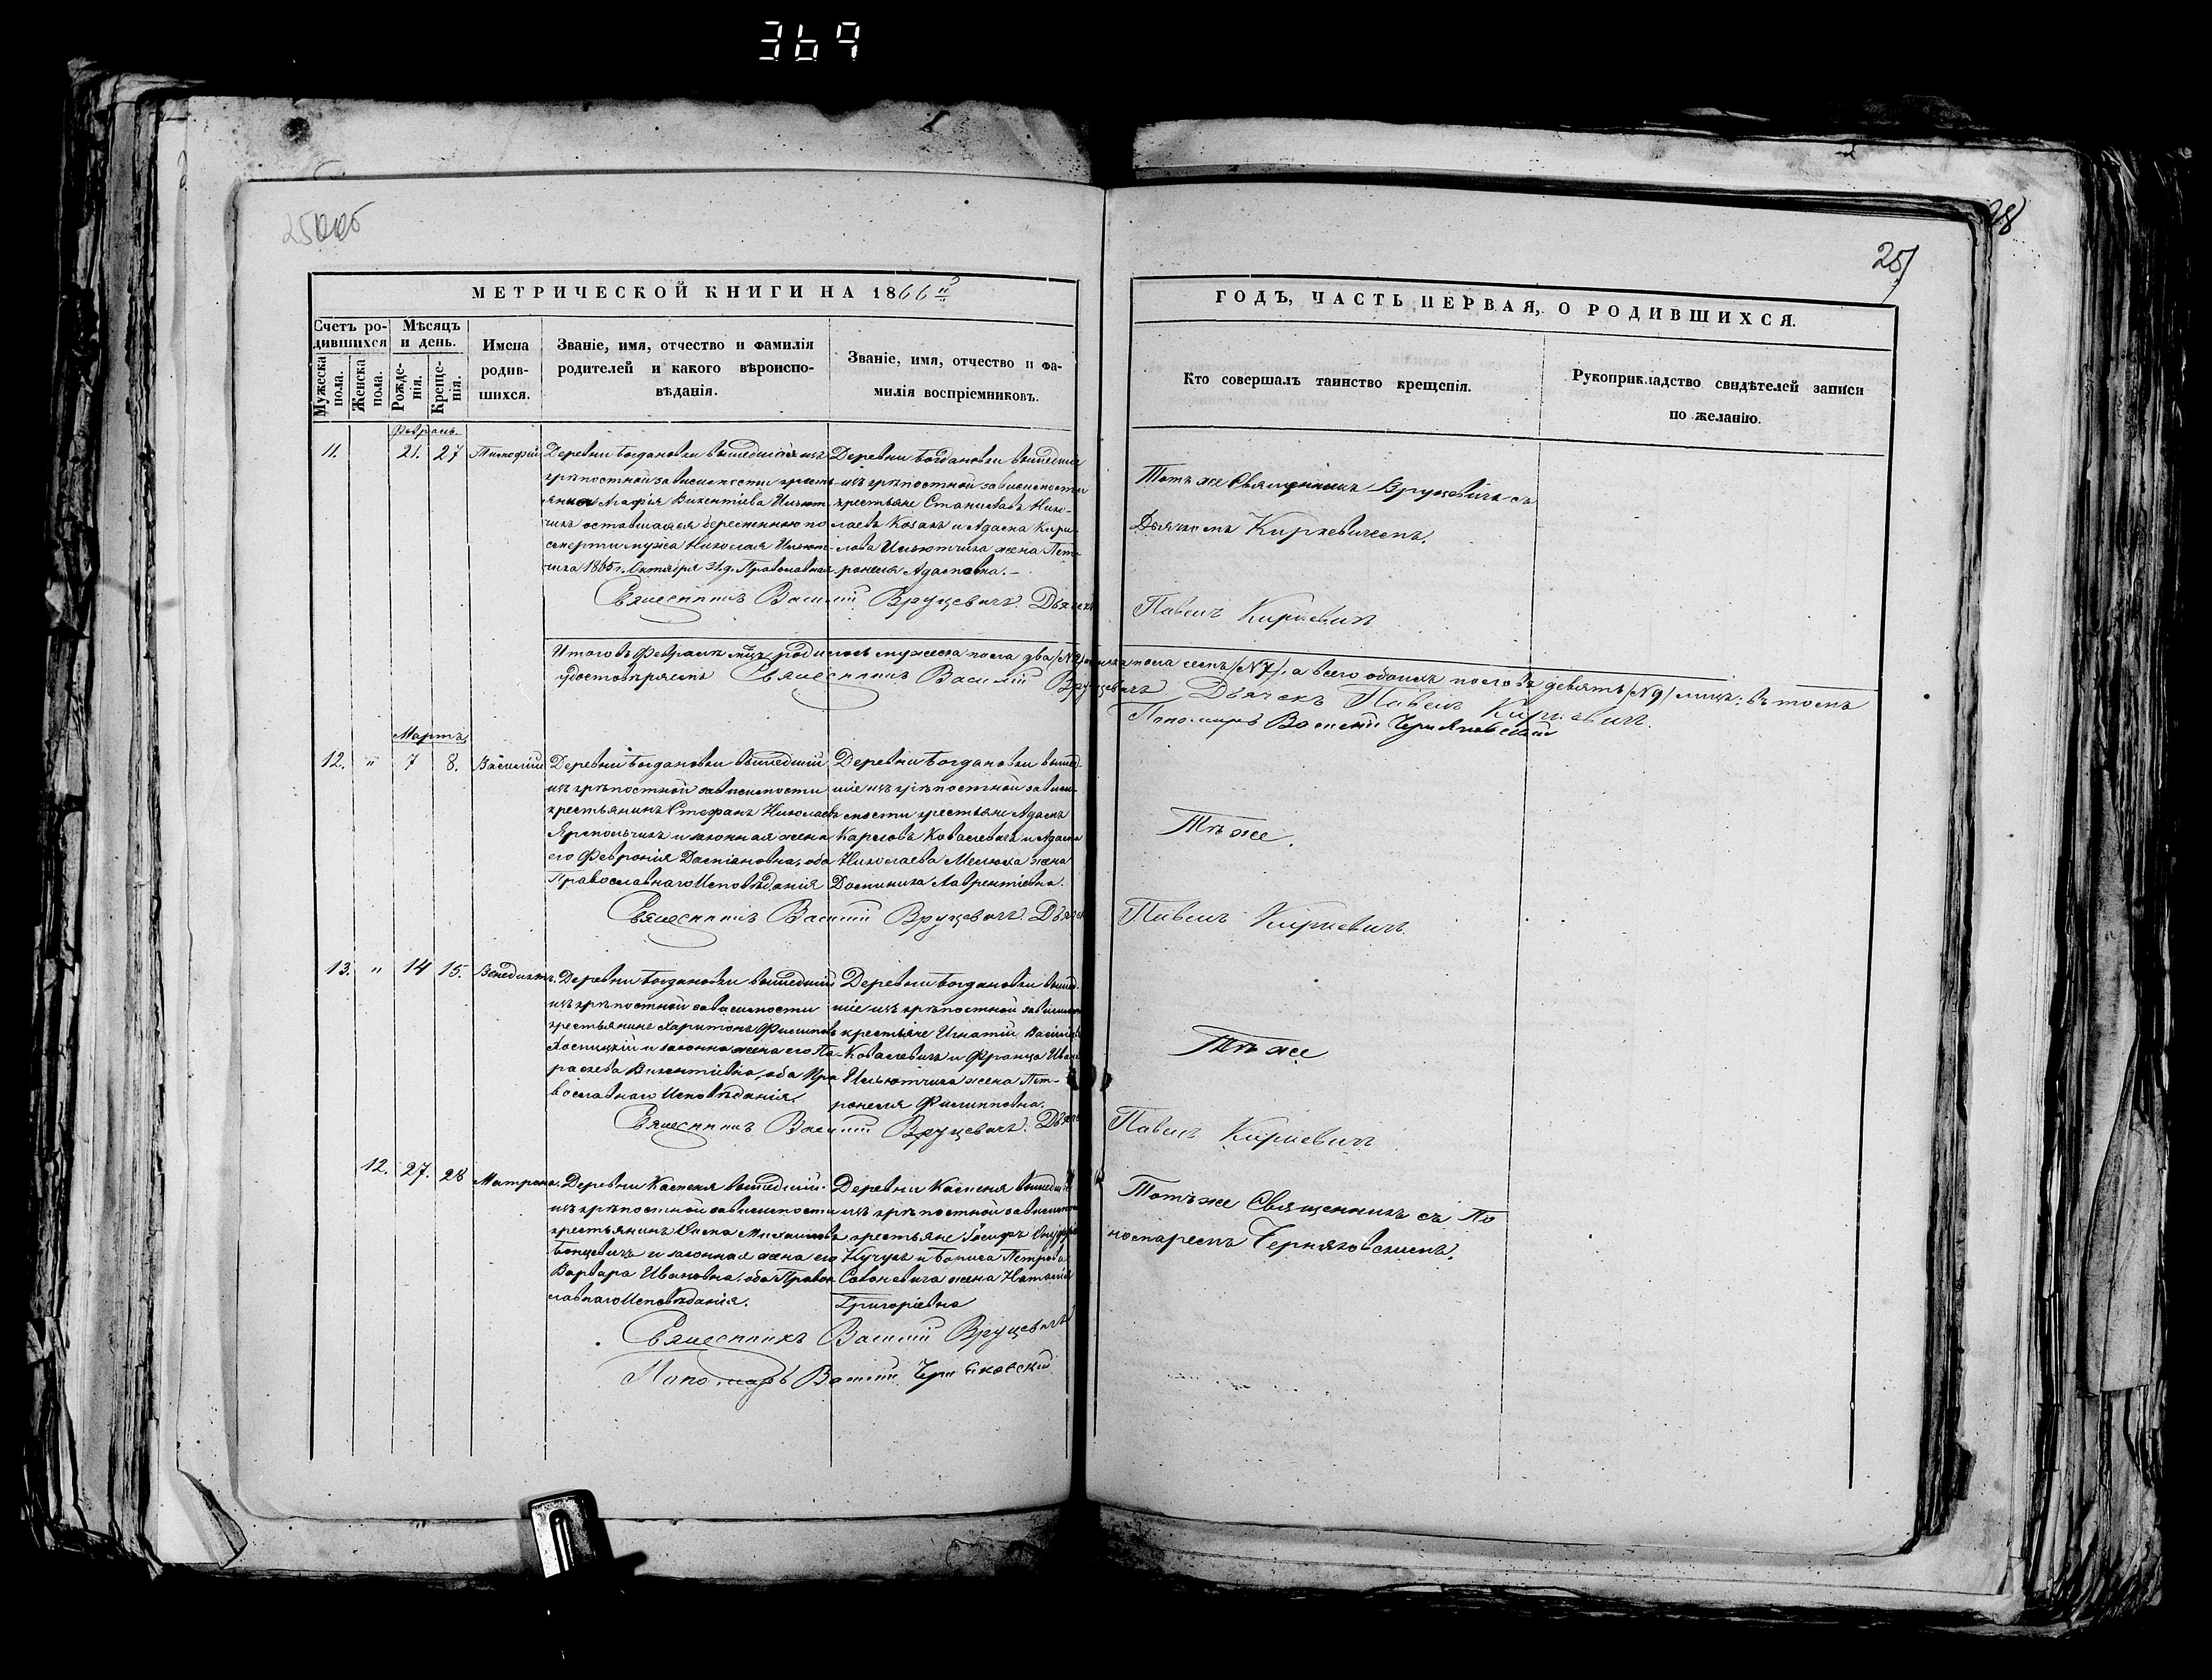 369
25
28
МЕТРИЧЕСКОЙ КНИГИ НА 1866й
ГОДЪ, ЧАСТЬ ПЕРВАЯ, О РОДИВШИХСЯ.
Счетъ родившихся
Мужеска пола.
Женска пола.
Мѣсяцъ и день.
Рожденія.
Крещенія.
Имена родившихся.
Званіе, имя, отчество и фамилія
родителей и какого вѣроиспо-
вѣданія.
Званіе, имя, отчество и фа-
милія воспріемниковъ.
Кто совершалъ таинство крещенія.
Рукоприкладство свидѣтелей записи
по желанію.
Февраль
11. 21. 27 Тимофей
Деревни Богдановки вышедшая изъ
крѣпостной зависимости кресть-
янка Агафія Викентіева Ильют-
чикъ оставшаяся беременною по
смерти мужа Николая Ильют-
чика 1865 г. Октября 31 д. Православная
Деревни Богдановки вышедшіе
изъ крѣпостной зависимости
крестьяне Станиславъ Нико-
лаевъ Козакъ и Адама Кири-
лова Ильютчика жена Пет-
ронеля Адамовна.
Тотъ же Священникъ Вруцевичъ съ
Дьячкомъ Киркевичемъ.
Священникъ Василій Вруцевичъ. Дьячекъ Павелъ Киркевичъ
Итого въ Февралѣ мцѣ родилось мужеска пола два (№2) женска пола семь (№7), а всего обоихъ половъ девять (№9) лицъ; въ томъ
удостовѣряемъ Священникъ Василій Вруцевичъ Дьячекъ Павелъ Киркевичъ.
Пономарь Василій Черняковскій
Мартъ
12. " 7 8. Василій
Деревни Богдановки вышедшій
изъ крѣпостной зависимости
крестьянинъ Стефанъ Николаевъ
Ярмольчикъ и законная жена
его Февронія Даміановна, оба
Православнаго Исповѣданія
Деревни Богдановки вышед-
шіе изъ крѣпостной зависи-
мости крестьяне Адамъ
Карловъ Ковалевичъ и Адама
Николаева Мелюха жена
Доминика Лаврентіевна.
Тѣ же.
Священникъ Василій Вруцевичъ. Дьячекъ Павелъ Киркевичъ.
13. " 14 15. Венедиктъ.
Деревни Богдановки вышедшій
изъ крѣпостной зависимости
крестьянинъ Харитонъ Филиповъ
и законна жена его Па-
раскева Викентіевна, оба Пра-
вославнаго Исповѣданія.
Деревни Богдановки вышед-
шіе изъ крѣпостной зависимости
крестьяне Игнатій
Ковалевичъ и Франца
Ильютчика жена Пет-
ронеля Филипповна.
Тѣ же
Священникъ Василій Вруцевичъ. Дьячекъ Павелъ Киркевичъ
12. 27. 28 Матрона.
Деревни Каменя вышедшій
изъ крѣпостной зависимости
крестьянинъ
и законная жена его
Варвара Ивановна, оба Правос-
лавнаго Исповѣданія.
Деревни Каменя вышедшіе
изъ крѣпостной зависимости
крестьяне Іосифъ
Кучукъ и Петрова
жена Наталія
Григоріевна
Тотъ же Священникъ съ По-
номаремъ Черняковскимъ.
Священникъ Василій Вруцевичъ
Пономарь Василій Черняковскій